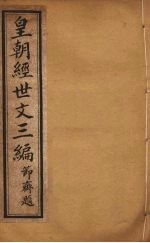 皇朝經世文三編
節齋題